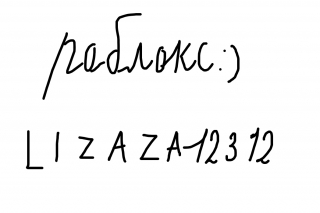 раблокс:)
LIZAZA12312